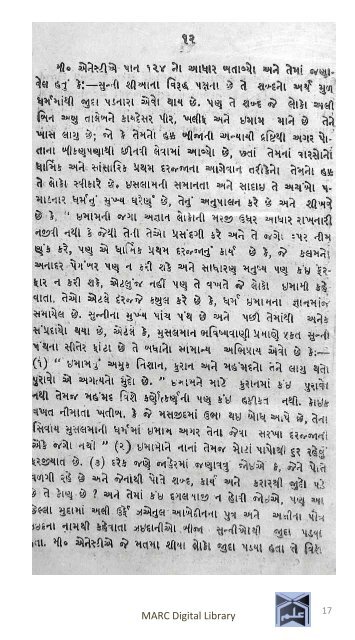 ૧૨
મી૦ એનેસ્ટીએ પાન ૧૨૪ નો આધાર બતાવ્યો અને તેમાં જણા-
વેલ હતું કે:—સુન્ની શીઆના વિરૂદ્ધ પક્ષના છે તે શબ્દનો અર્થ મુળ
ધર્મમાંથી જુદા પડનારા એવો થાય છે. પણ તે શબ્દ જે લોકો અલી
બિન અબુ તાલેબને કાબ્દેસર પીર, ખલીફ અને ઇમામ માને છે તેને
ખાસ લાગુ છે; જો કે તેમનો હક્ક બીજાની અન્યાયી દ્રષ્ટિથી અગર પો-
તાના બીકણપણાથી છીનવી લેવામાં આવ્યો છે, છતાં તેમનાં વારસોનો
ધાર્મિક અને સાંસારિક પ્રથમ દરજ્જાના આગેવાન તરીકેનો તેમનો હક્ક
તે લોકો સ્વીકારે છે. ઇસલામની સમાનતા અને સાદાઇ તે અચંબો પ-
માડનાર ધર્મનું મુખ્ય ધરેણું છે, તેનું અનુપાલન કરે છે અને શીખવે
છે કે, “ ઇમામની જગા અજ્ઞાન લોકોની મરજી ઉપર આધાર રાખનારી
નજીવી નથી કે જેથી તેની તેઓ પ્રસંદગી કરે અને તે જગા ઉપર નીમ
ણુંક કરે, પણ એ ધાર્મિક પ્રથમ દરજ્જાનું કાર્ય છે કે, જે કલમનો
અનાદર પેગંબર પણ ન કરી શકે અને સાધારણ મનુષ્ય પણ કંઇ ફેર-
ફાર ન કરી શકે, એટલુંજ નહીં પણ તે વખતે જે લોકો ઇમામી કહે
વાતા, તેઓ એટલે દરજ્જે કબુલ કરે છે કે, ધર્મ ઇમામના જ્ઞાનમાંજ
સમાયેલ છે. સુન્નીના મુખ્ય પાંચ પંથ છે અને પછી તેમાંથી અનેક
સંપ્રદાયો થયા છે, એટલે કે, મુસલમાન ભવિષ્યવાણી પ્રમાણે ફકત સુન્ની
પંથના સીતેર ફાંટા છે તે બધાનો સામાન્ય અભિપ્રાય એવો છે કે:—
(૧) “ ઇમામનું અમુક નિશાન, કુરાન અને મહંમદનો તેને લાગુ થતો
પુરાવો એ અગત્યનો મુદ્દો છે. ” ઇમામને માટે કુરાનમાં કંઇ પુરાવો
નથી તેમજ મહંમદ વિશે કર્ણોપકર્ણની પણ કંઇ હકીકત નથી. કોઇક
વખત નીમાતા ખતીબ, કે જે મસજીદમાં ઉભા થઇ બોધ આપે છે, તેના
સિવાય મુસલમાની ધર્મમાં ઇમામ અગર તેના જેવા સરખા દરજ્જાની
એકે જગા નથી ” (૨) ઇમામોને નાનાં તેમજ મોટાં પાપોથી દૂર રહેવું
ફરજીયાત છે. (૩) દરેક જણે જાહેરમાં જણાવવું જોઇએ કે, જેને પોતે
વળગી રહે છે અને જેનાથી પોતે શબ્દ, કાર્ય અને કરારથી જુદો પડે
છે તે કોણ છે ? અને તેમાં કંઇ દગલબાજી ન હોવી જોઇએ, પણ આ
છેલ્લા મુદામાં અલી ઉર્ફે ઝએનુલ આબેદીનના પુત્ર અને અલીના પૌત્ર
ઝઇદના નામથી કહેવાતા ઝઇદાનીઓ બીજા સુન્નીઓથી જુદા પડવા
હતા. મી૦ એનેસ્ટીએ જે મતમા શીયા લોકો જુદા પડવા હતા તે વિશે
MARC Digital Library
17